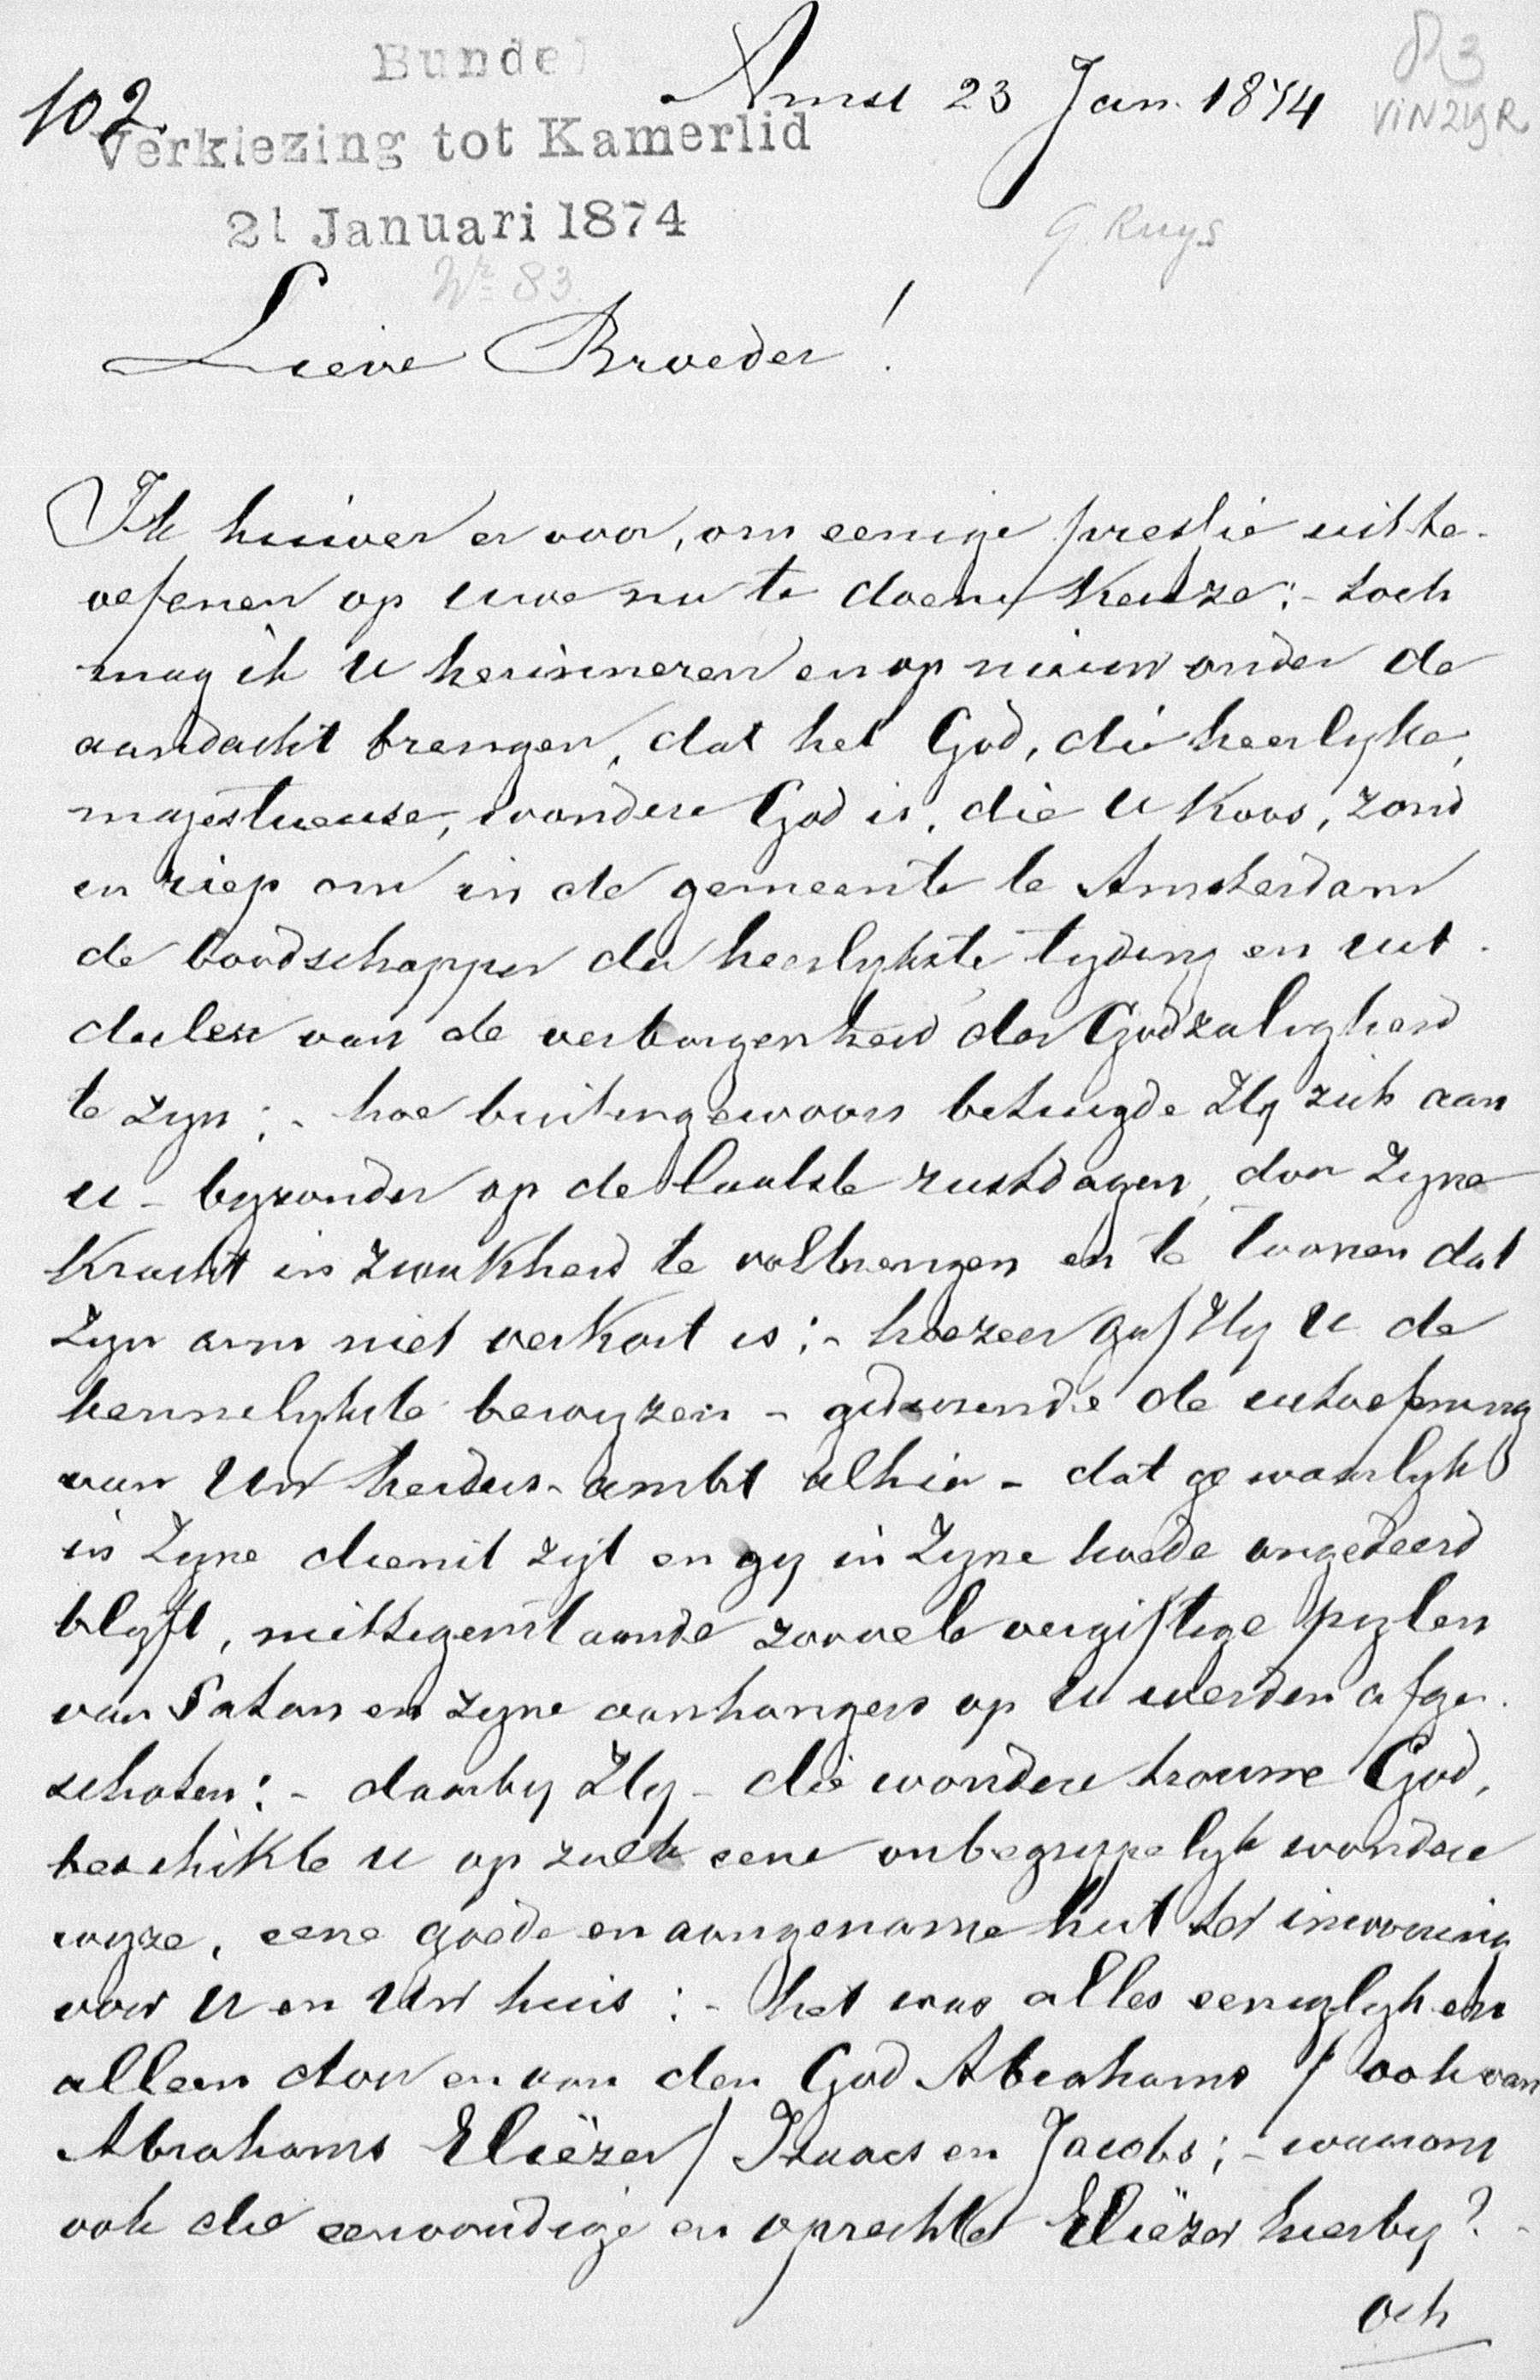 Bundel
102
Amst 23 Jan. 1874
83
VIN219R
Verkiezing tot Kamerlid
21 Januari 1874
G. Ruys
Nr 83.
Lieve Broeder!
Ik huiver er voor, om eenige pressie uit te-
oefenen op uwe nu te doene Keuze: - toch
mag ik U herinneren en op nieuw onder de
aandacht brengen, dat het God, die heerlyke,
majestueuse, wondere God is, die U Koos, zond
en riep om in de gemeente te Amsterdam
de boodschapper der heerlykste tyding en uit-
deeler van de verborgenheid der Godzaligheid
te zyn; - hoe buitengewoon betuigde Hy zich aan
u - byzonder op de laatste rustdagen, door Zyne
Kracht in zwakheid te volbrengen en te toonen dat
Zyn arm niet verkort is: - hoezeer gaf Hy U de
kennelykste bewyzen - gedurende de uitoefening
van Uw herders-ambt alhier - dat ge waarlyk
in Zyne dienst zyt en gy in Zyne hoede ongedeerd
blyft, niettegenstaande zoovele vergiftige pylen
van Satan en zyne aanhangers op U werden afge-
schoten: - daarby Hy - die wondere trouwe God,
beschikte u op zulk eene onbegrypelyk wondere
wyze, eene goede en aangename hut ter inwoning
voor U en Uw huis: - het was alles eeniglyk en
alleen door en van den God Abrahams / ook van
Abrahams Eliëzer / Izaacs en Jacobs; - waarom
ook die eenvoudige en oprechte Eliëzer hierby?-
och